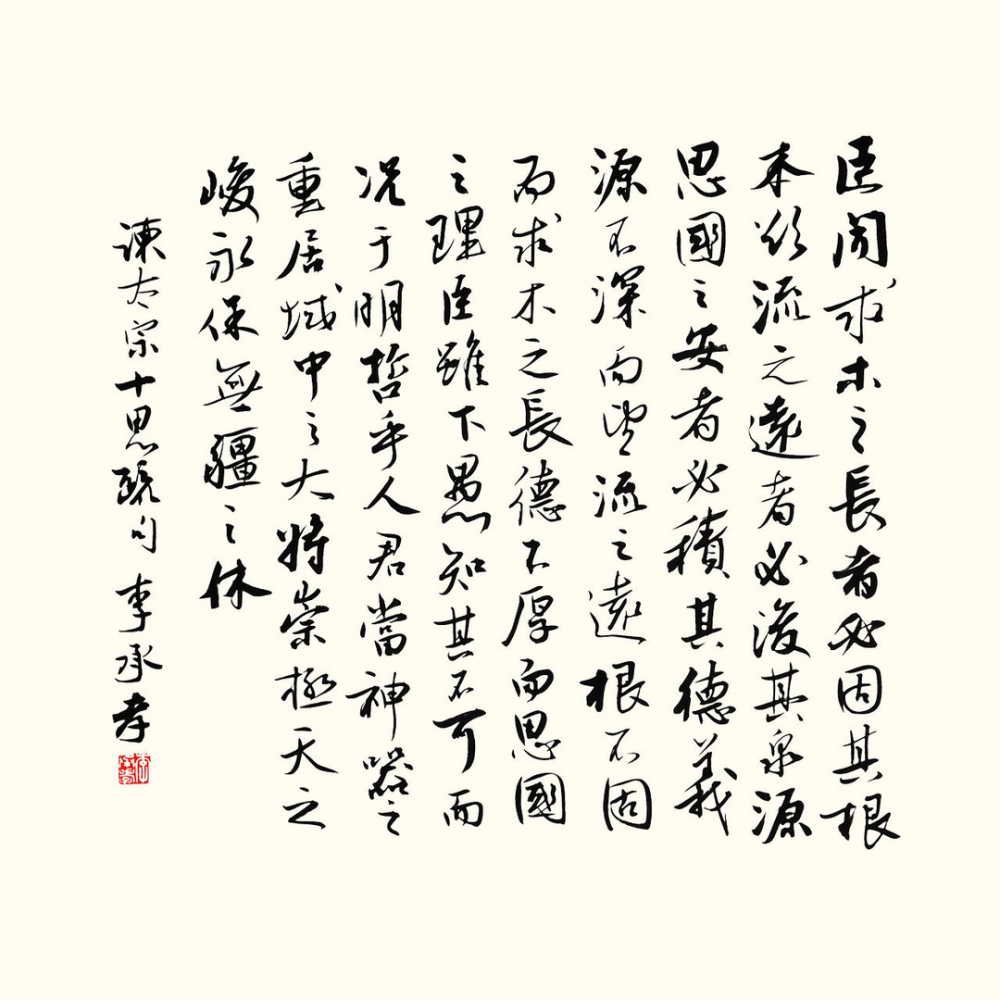 臣闻求木之長者必因其根
本欲流之遠者必浚其泉源
思國之安者必積其德義
源不深而望流之遠根不固
而求木之長德不厚而思國
之理臣雖下愚知其不可而
况于明哲乎人君當神器之
重居域中之大將崇極天之
峻永保無疆之休
諫太宗十思疏句 李承孝